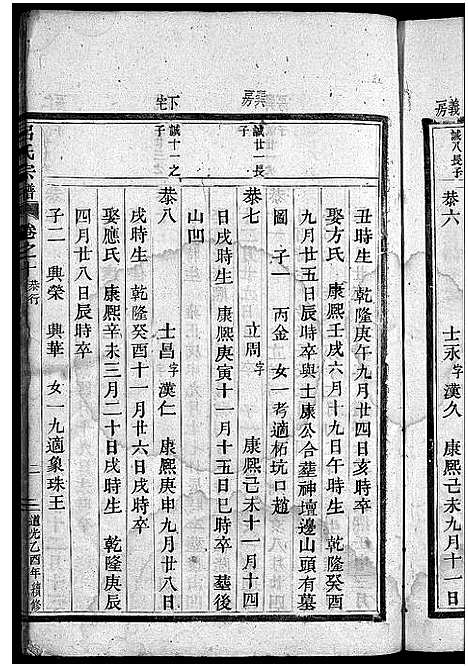 義房
誠八長子
恭六 士永字漢久 康熙己未九月十一日
丑時生 乾隆庚午九月廿四日亥時卒
娶方氏 康熙壬戌六月十九日午時生 乾隆癸酉
九月廿五日辰時卒與士康公合塟神壇邊山頭有墓
圖 子一 丙金 女一考適柘坑口趙
房
誠廿一長子
恭七 立問字 康熙己未十一月十四
日戌時生 康熙庚寅十一月十五日巳時卒 塟後
山凹
下宅
誠十一之子
恭八 士昌字漢仁 康熙庚申九月廿八日
戌時生 乾隆癸酉十一月廿六日戌時卒
娶應氏 康熙辛未三月二十日戌時生 乾隆庚辰
四月廿八日辰時卒
子二 興榮 興華 女一九適象珠王
呂氏宗譜 卷之一 恭行 二 道光乙酉年續修